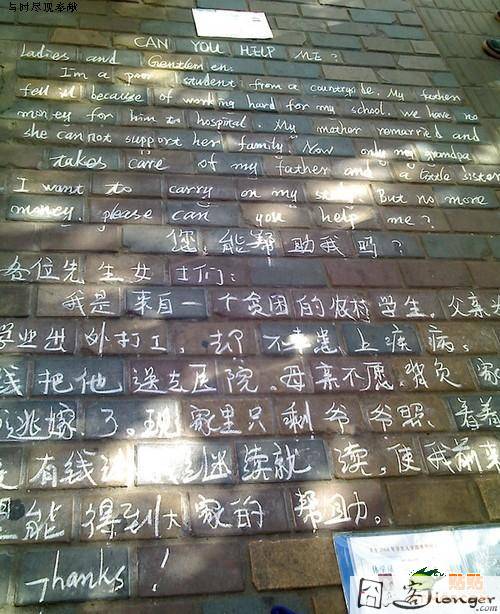 与时尽现奉献
CAN YOU HELP ME?
Ladies and Gentlemen:
I'm a poor student from a countryside. My father
fell ill because of working hard for my school. we have no
money for him to hospital. My mother remarried and
she cannot support her family. Now only my grandpa
takes care of my father and a little sister
I want to carry on my study. But no more
money. please can you help me?
您能帮助我吗?
各位先生女士们:
我是来自一个贫困的农村学生。父亲
学业出外打工,却不幸患上疾病。
钱把他送去医院。母亲不愿背负家
逃嫁了。现家里只剩爷爷照看着
有钱 继续就读,使我前
能得到大家的帮助。
Thanks!
贴贴
Tionger.com